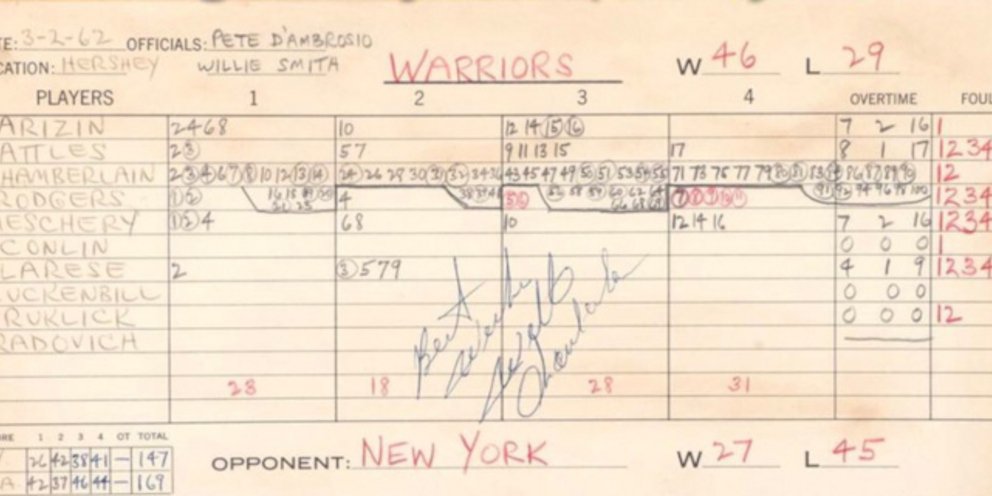 TE: 3-2-62 OFFICIALS: PETE D'AMBROSIO
CATION: HERSHEY WILLIE SMITH WARRIORS W 46 L 29
PLAYERS 1 2 3 4 OVERTIME FOUL
ARIZIN 2 4 6 8 10 12 14 15 16 7 2 16 1
ATTLES 2 3 5 7 9 11 13 15 17 8 1 17 1 2 3 4
HAMBERLAIN 2 3 4 6 7 8 10 12 13 14 24 26 28 30 43 45 47 49 50 51 53 71 73 75 77 79 12
RODGERS 1 2 4 1 2 3 4
MESCHERY 1 2 4 6 8 10 12 14 16 7 2 16 1 2 3 4
CONLIN 0 0 0 1
LARESE 2 3 5 7 9 4 1 9 1 2 3 4
LUCKENBILL 0 0 0
RUKLICK 0 0 0 12
RADOVICH
Best Wishes
Wilt Chamberlain
23 18 28 31
ORE 1 2 3 4 OT TOTAL
Y. 26 42 38 41 — 147
A. 42 37 46 44 — 169
OPPONENT: NEW YORK W 27 L 45